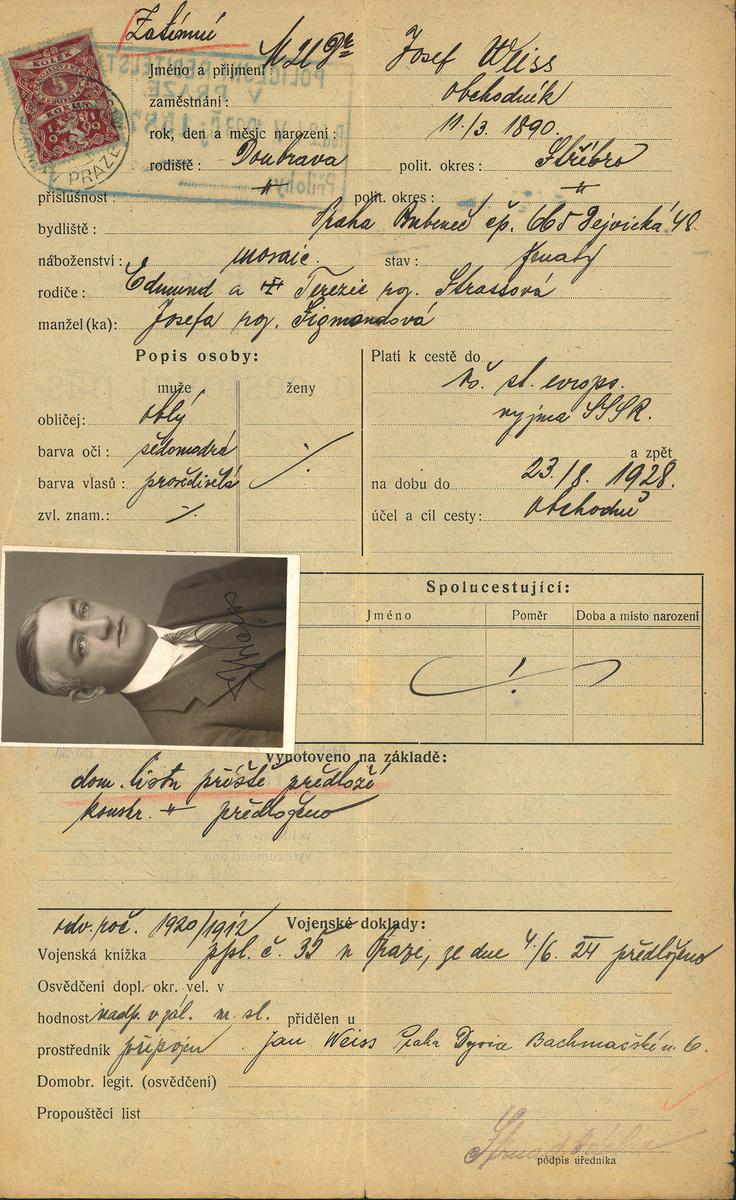 Zatímní
Josef Weiss
Jméno a příjmení
Obchodník
zaměstnání:
rok, den a měsíc narození: 11./3. 1890.
rodiště: Doubrava polit. okres: Stříbro
příslušnost: " polit. okres: "
bydliště: Praha Bubeneč čp. 665 Dejvická 48.
náboženství: mosaic. stav: ženatý
rodiče: Edmund a Terezie roz. Strassová
manžel (ka): Josefa roz. Sigmondová
Popis osoby:
muže ženy
obličej: oblý
barva očí: šedomodrá
barva vlasů: prošedivělá
zvl. znam.:
Platí k cestě do
st. evrops.
vyjma SSSR.
a zpět
na dobu do 23./8. 1928.
účel a cíl cesty: obchodní
KOLEK
5
KORUN
1919
PRAZE
Spolucestující:
Jméno Poměr Doba a místo narození
Vyhotoveno na základě:
dom. listu příště předloží
" předloženo
odv. roč. 1920/1912 Vojenské doklady:
Vojenská knížka č. 35 v Praze, ze dne 4./6. 24 předloženo
Osvědčení dopl. okr. vel. v
hodnost přidělen u
prostředník Jan Weiss Praha Bachmačské n. 6.
Domobr. legit. (osvědčení)
Propouštěcí list
podpis úředníka